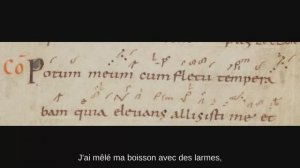 Cō Potum meum cum fletu tempera
bam quia eleuans allisisti me et
J'ai mêlé ma boisson avec des larmes,